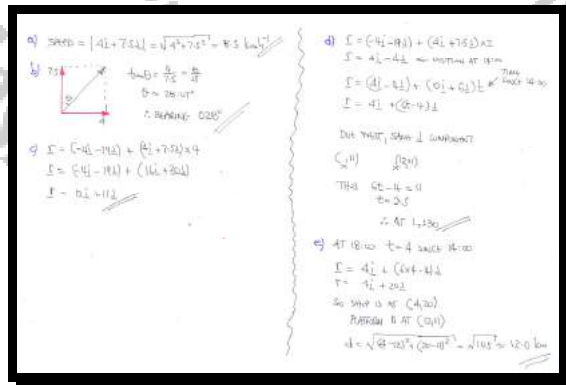 a) SPEED = |4i + 7.5j| = √4² + 7.5² = 8.5 kmh⁻¹
b) 7.5
θ
4
tanθ = 4/7.5 = 8/15
θ ≈ 28.07°
∴ BEARING 028°
c) r = (-4i - 19j) + (4i + 7.5j) × 4
r = (-4i - 19j) + (16i + 30j)
r = 12i + 11j
d) r = (-4i - 19j) + (4i + 7.5j) × 2
r = 4i - 4j ← POSITION AT 14:00
r = (4i - 4j) + (0i + 6j)t ← TIME SINCE 14:00
r = 4i + (6t - 4)j
DUE WEST, SAME j COMPONENT
(x, 11) (12, 11)
THUS 6t - 4 = 11
t = 2.5
∴ AT 1630
e) AT 18:00 t = 4 SINCE 14:00
r = 4i + (6×4 - 4)j
r = 4i + 20j
SO SHIP IS AT (4, 20)
PLATFORM IS AT (12, 11)
d = √(4-12)² + (20-11)² = √145 ≈ 12.0 km